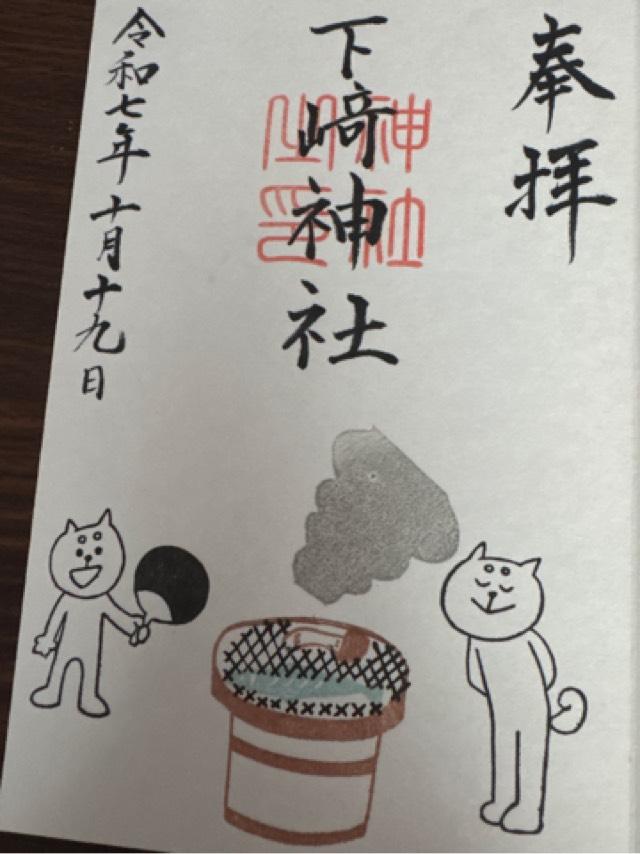 奉拝
下﨑神社
神社
之印
令和七年十月十九日